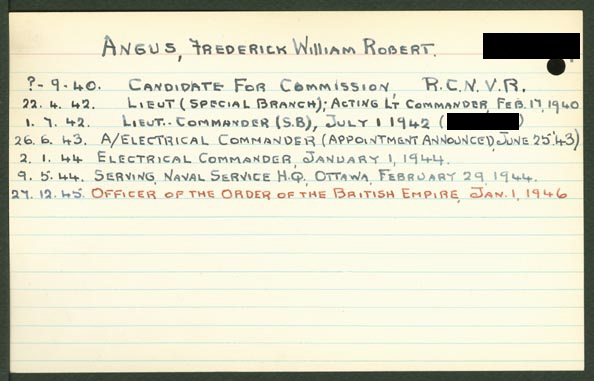 ANGUS, FREDERICK WILLIAM ROBERT.
?-9-40. CANDIDATE FOR COMMISSION, R.C.N.V.R.
22. 4. 42. LIEUT (SPECIAL BRANCH); ACTING LT COMMANDER, FEB. 17, 1940
1. 7. 42. LIEUT.. COMMANDER (S.B), JULY 1 1942 ( )
26. 6. 43. A/ELECTRICAL COMMANDER (APPOINTMENT ANNOUNCED, JUNE 25 '43)
2. 1. 44 ELECTRICAL COMMANDER, JANUARY 1, 1944.
9. 5. 44. SERVING, NAVAL SERVICE H.Q, OTTAWA, FEBRUARY 29, 1944.
27. 12. 45. OFFICER OF THE ORDER OF THE BRITISH EMPIRE, JAN. 1, 1946